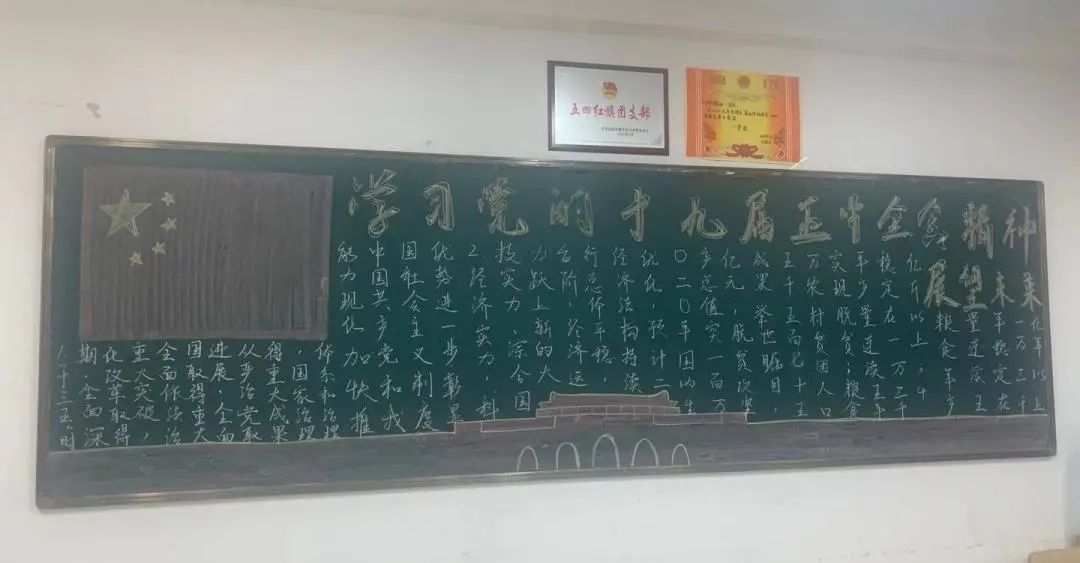 五四红旗团支部
一等奖
学习党的十九届五中全会精神
展望未来
十三五时
期，全面深
化改革取得
重大突破，
全面依法治
国取得重大
进展，全面
从严治党取
得重大成果
，国家治理
体系和治理
能力现代化加快推
中国共产党和我
国社会主义制度
优势进一步彰显
2经济实力，科
技实力、综合国
力跃上新的大
台阶，经济运
行总体平稳，
经济结构持续
优化 预计二
〇二〇年国内生
产总值突一百万
亿元，脱贫攻坚
成果举世瞩目，
五千五百七十五
万农村贫困人口
实现脱贫；粮食
年产量连续五年
稳定在一万三千
亿斤以上，
粮食年产
量连续五
年稳定在
一万三千
以上